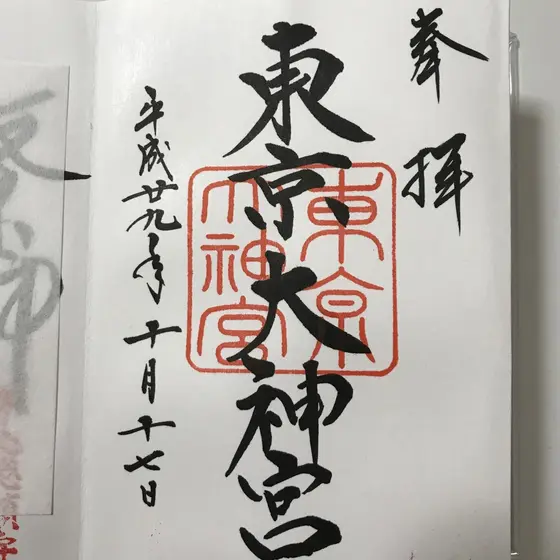 奉拝
東京大神宮
東京
大神宮
平成廿九年十月十七日